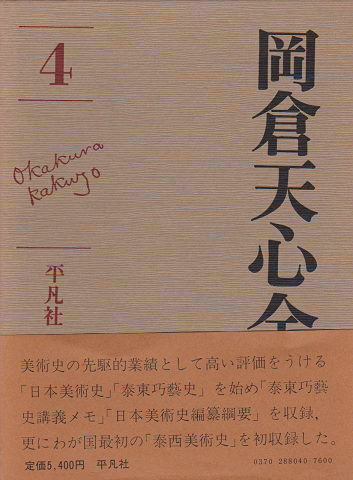 岡倉天心全
4
Okakura
Kakuzo
平凡社
美術史の先駆的業績として高い評価をうける
「日本美術史」「泰東巧藝史」を始め「泰東巧藝
史講義メモ」「日本美術史編纂綱要」を収録,
更にわが国最初の「泰西美術史」を初収録した。
定価5,400円 平凡社
0370-288040-7600